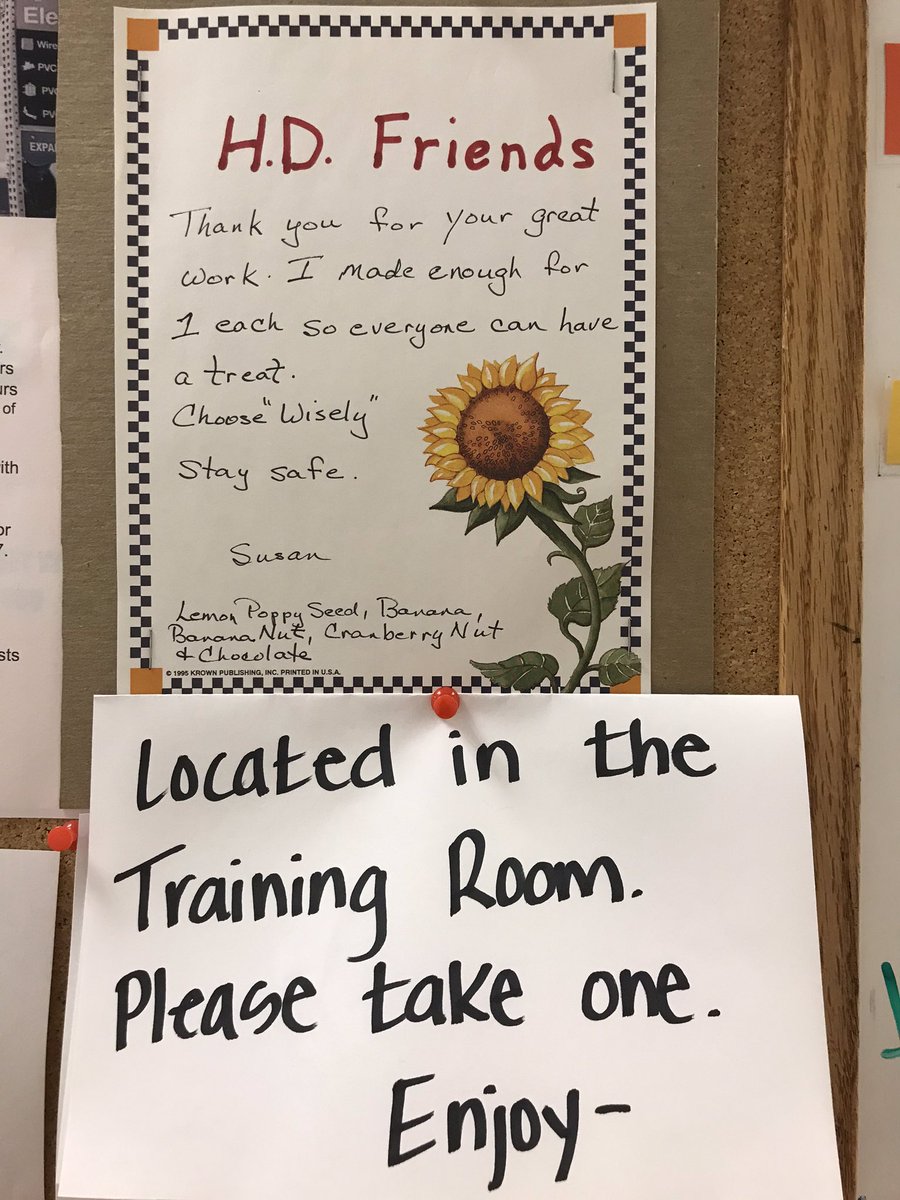 Ele
Wire
PVC
PV
P
EXPA
rs
urs
of
ith
or
7.
sts
H.D. Friends
Thank you for your great
work. I made enough for
1 each so everyone can have
a treat.
Choose "Wisely"
Stay safe.
Susan
Lemon Poppy Seed, Banana,
Banana Nut, Cranberry Nut
& Chocolate
© 1995 KROWN PUBLISHING, INC. PRINTED IN U.S.A.
Located in the
Training Room.
Please take one.
Enjoy-